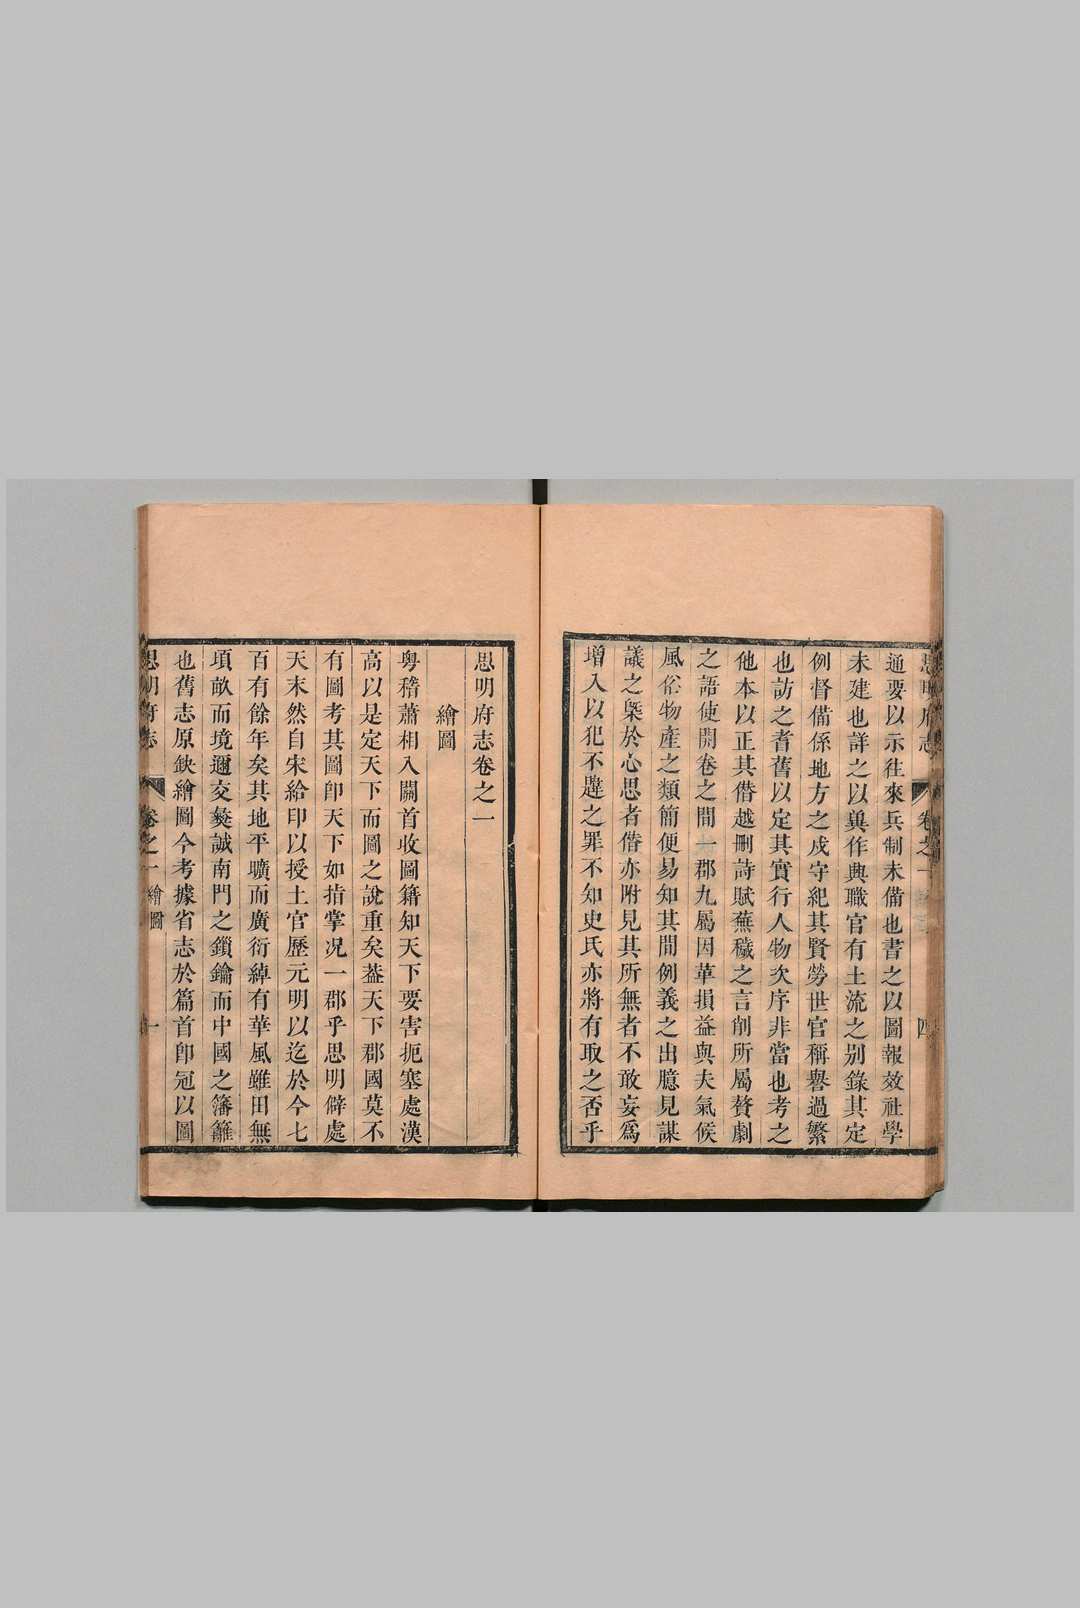 通要以示往來兵制未備也書之以圖報效社學
未建也詳之以兾作典職官有土流之别錄其定
例督備係地方之戍守紀其賢勞世官稱譽過繁
也訪之耆舊以定其實行人物次序非當也考之
他本以正其僣越刪詩賦蕪穢之言削所屬贅劇
之語使開卷之間一郡九屬因革損益與夫氣候
風俗物產之類簡便易知其間例義之出臆見謀
議之槩於心思者偕亦附見其所無者不敢妄爲
增入以犯不韙之罪不知史氏亦將有取之否乎
思明府志卷之一
繪圖
粤稽蕭相入關首收圖籍知天下要害扼塞處漢
高以是定天下而圖之說重矣葢天下郡國莫不
有圖考其圖卽天下如指掌况一郡乎思明僻處
天末然自宋給印以授土官歷元明以迄於今七
百有餘年矣其地平曠而廣衍綽有華風雖田無
項畝而境邇交彛誠南門之鎖鑰而中國之籓籬
也舊志原欽繪圖今考據省志於篇首卽冠以圖
思明府志 卷之一 繪圖 一